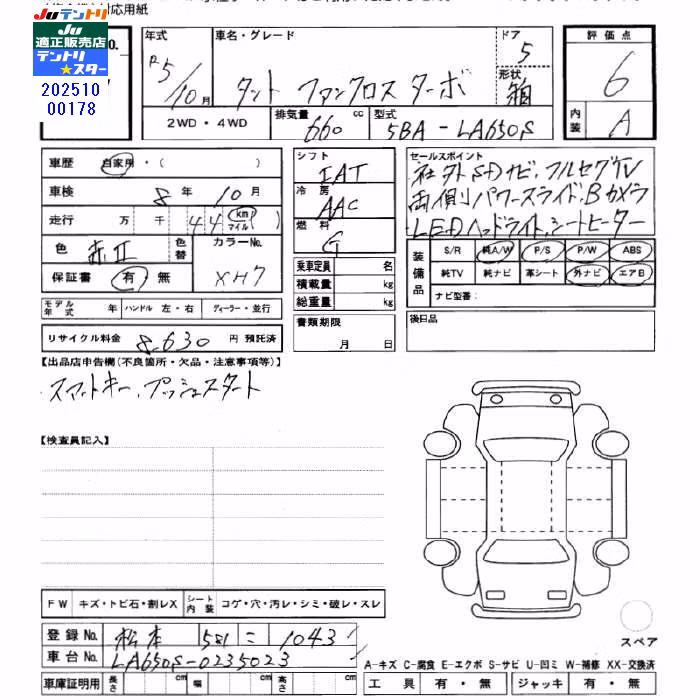 対応用紙
JUテントリ
JU
適正販売店
テントリ
★スター
202510
00178
年式
R5/10月
車名・グレード
タント ファンクロス ターボ
ドア
5
形状
箱
評価点
6
内装
A
2WD・4WD
排気量
660 cc
型式
5BA-LA650S
車歴 自家用・( )
車検 8年10月
走行 万 千 44 km マイル
色 赤II 色替 カラーNo. XH7
保証書 有 無
モデル年式 年 ハンドル 左・右 ディーラー・並行
リサイクル料金 8,630 円 預託済
シフト
IAT
冷房
AAC
燃料
G
乗車定員 名
積載量 kg
総重量 kg
書類期限
月 日
セールスポイント
社外SDナビ、フルセグTV
両側パワースライド、Bカメラ
LEDヘッドライト、シートヒーター
装備品
S/R 純A/W P/S P/W ABS
純TV 純ナビ 革シート 外ナビ エアB
ナビ型番:
後日品
【出品店申告欄(不良箇所・欠品・注意事項等)】
スマートキー、プッシュスタート
【検査員記入】
FW キズ・トビ石・割レX シート内装 コゲ・穴・汚レ・シミ・破レ・スレ
登録No. 松本 581 こ 1043
車台No. LA650S-0235023
車庫証明用 長さ cm 幅 cm 高さ cm
スペア
A-キズ C-腐食 E-エクボ S-サビ U-凹ミ W-補修 XX-交換済
工具 有・無 ジャッキ 有・無